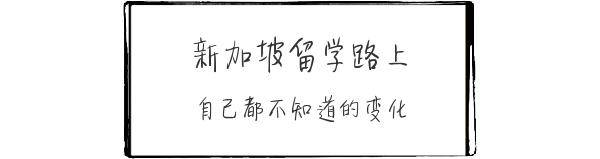 新加坡留学路上
自己都不知道的变化